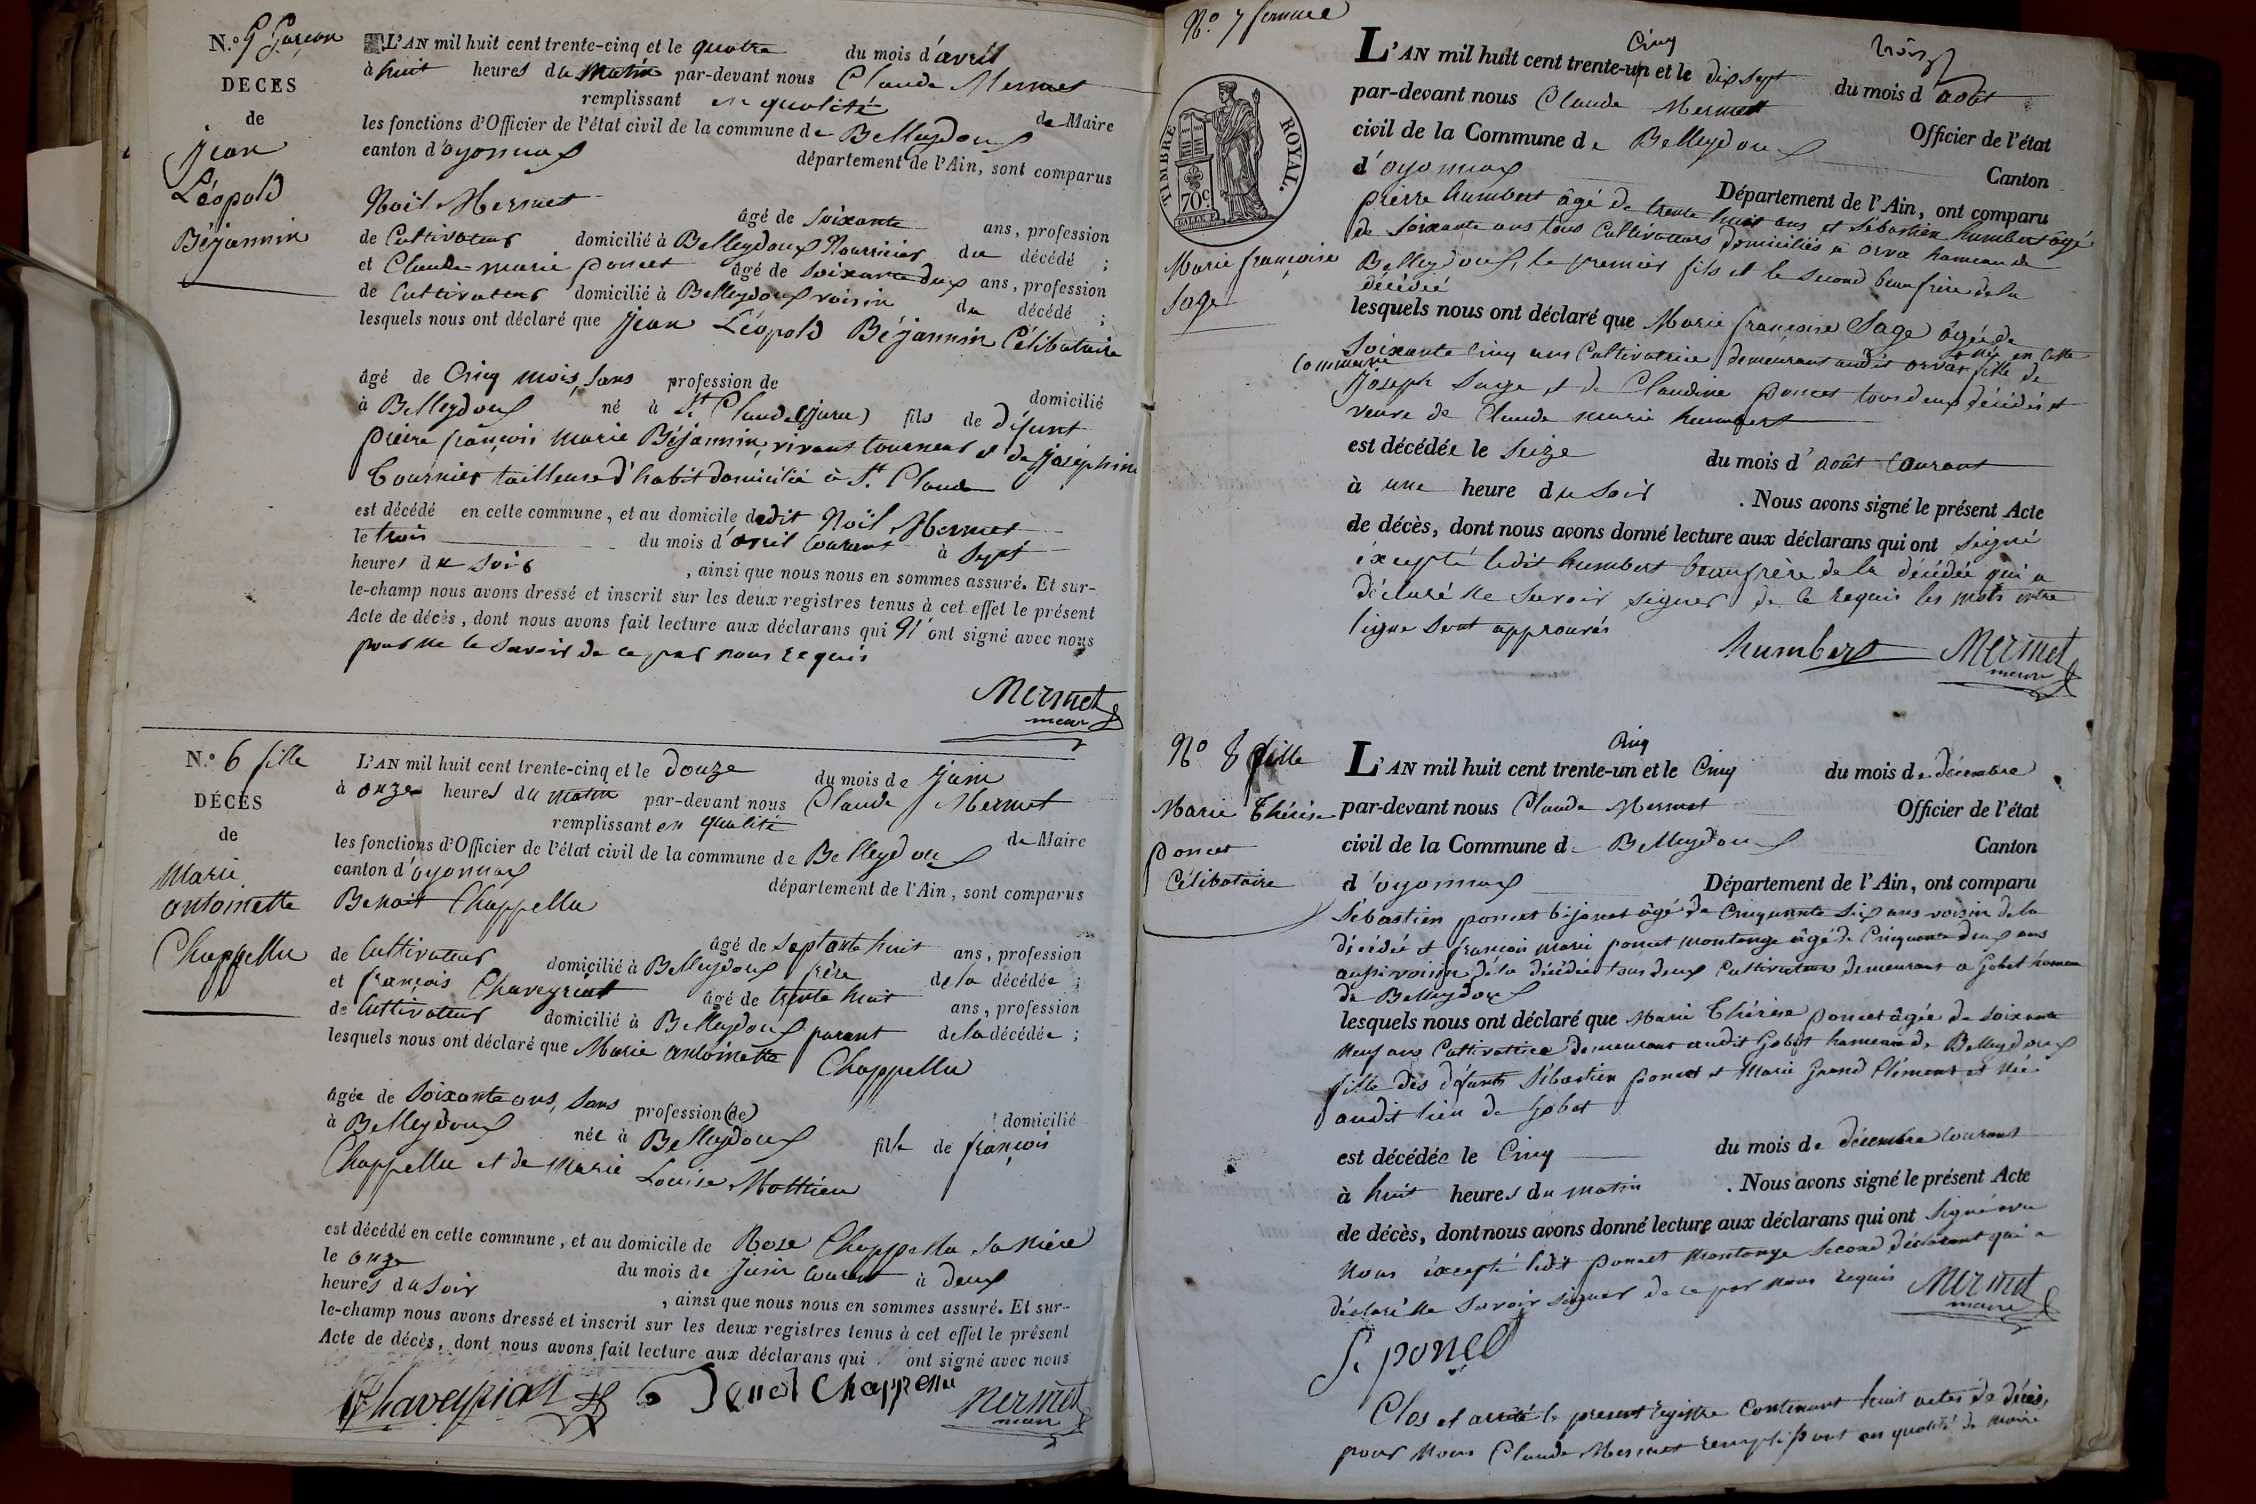 N.o 5 garçon
DECES
de
Jean
Léopold
Béjannin
L'AN mil huit cent trente-cinq et le quatre du mois d'avril
à huit heures du matin par-devant nous Claude Mermet
remplissant en qualité de Maire
les fonctions d'Officier de l'état civil de la commune de Belleydoux
canton d'oyonnax département de l'Ain, sont comparus
Noël Mermet
âgé de soixante ans, profession
de Cultivateur domicilié à Belleydoux Nourricier du décédé ;
et Claude marie poncet âgé de soixante deux ans, profession
de Cultivateur domicilié à Belleydoux voisin du décédé ;
lesquels nous ont déclaré que Jean Léopold Béjannin Célibataire
âgé de Cinq mois, sans profession de domicilié
à Belleydoux né à St Claude (jura) fils de défunt
pierre françois marie Béjannin, vivant tourneur et de Joséphine
Tournier tailleuse d'habit domicilié à St. Claude
est décédé en cette commune, et au domicile dudit Noël Mermet
le trois du mois d'avril courant à sept
heures du soir , ainsi que nous nous en sommes assuré. Et sur-
le-champ nous avons dressé et inscrit sur les deux registres tenus à cet effet le présent
Acte de décès, dont nous avons fait lecture aux déclarans qui n'ont signé avec nous
pour ne le savoir de ce par nous requis
Mermet
maire
N.o 6 fille
DÉCÈS
de
Marie
antoinette
Chappellu
L'AN mil huit cent trente-cinq et le douze du mois de juin
à onze heures du matin par-devant nous Claude Mermet
remplissant en qualité de Maire
les fonctions d'Officier de l'état civil de la commune de Belleydoux
canton d'oyonnax département de l'Ain, sont comparus
Benoit Chappellu
âgé de septante huit ans, profession
de Cultivateur domicilié à Belleydoux frère de la décédée ;
et françois Chaveyriat âgé de trente huit ans, profession
de Cultivateur domicilié à Belleydoux parent de la décédée ;
lesquels nous ont déclaré que Marie antoinette Chappellu
âgée de soixante ans, sans profession (de) domicilié
à Belleydoux née à Belleydoux fille de françois
Chappellu et de Marie Louise Matthieu
est décédé en cette commune, et au domicile de Rose Chappellu sa Nièce
le onze du mois de juin courant à deux
heures du soir , ainsi que nous nous en sommes assuré. Et sur-
le-champ nous avons dressé et inscrit sur les deux registres tenus à cet effet le présent
Acte de décès, dont nous avons fait lecture aux déclarans qui ont signé avec nous
Chaveyriat Chappellu Mermet
maire
No. 7 femme
TIMBRE ROYAL.
70c.
Marie françoise
Sage
Cinq trois
L'AN mil huit cent trente-un et le dix sept du mois d'août
par-devant nous Claude Mermet Officier de l'état
civil de la Commune de Belleydoux Canton
d'oyonnax Département de l'Ain, ont comparu
pierre humbert âgé de trente huit ans et Sébastien humbert âgé
de soixante ans tous Cultivateurs domiciliés à orva hameau de
Belleydoux, le premier fils et le second beau frère de la
décédée
lesquels nous ont déclaré que Marie françoise Sage âgée de
soixante cinq ans Cultivatrice demeurant audit orva et née en cette
Commune fille de
Joseph Sage et de Claudine poncet tous deux décédés et
veuve de Claude marie humbert
est décédée le seize du mois d'août Courant
à une heure du soir . Nous avons signé le présent Acte
de décès, dont nous avons donné lecture aux déclarans qui ont signé
excepté ledit humbert beaufrère de la décédée qui a
déclaré ne savoir signer de ce requis les mots entre
ligne sont approuvés
humbert Mermet
maire
No 8 fille
Marie Thérèse
poncet
Célibataire
Cinq
L'AN mil huit cent trente-un et le Cinq du mois de décembre
par-devant nous Claude Mermet Officier de l'état
civil de la Commune de Belleydoux Canton
d'oyonnax Département de l'Ain, ont comparu
Sébastien poncet bijonet âgé de Cinquante six ans voisin de la
décédée et françois marie poncet montange âgé de Cinquante deux ans
aussi voisin de la décédée tous deux Cultivateurs demeurant a Gobet hameau
de Belleydoux
lesquels nous ont déclaré que Marie Thérèse poncet âgée de soixante
neuf ans Cultivatrice demeurant audit Gobet hameau de Belleydoux
fille des défunts Sébastien poncet et Marie Grand Clément et née
audit lieu de Gobet
est décédée le Cinq du mois de décembre Courant
à huit heures du matin . Nous avons signé le présent Acte
de décès, dont nous avons donné lecture aux déclarans qui ont signé avec
nous excepté ledit poncet montange second déclarant qui a
déclaré ne savoir signer de ce par nous requis Mermet
maire
S. poncet
Clos et arrêté le présent registre contenant huit actes de décès,
par nous Claude Mermet remplissant en qualité de maire